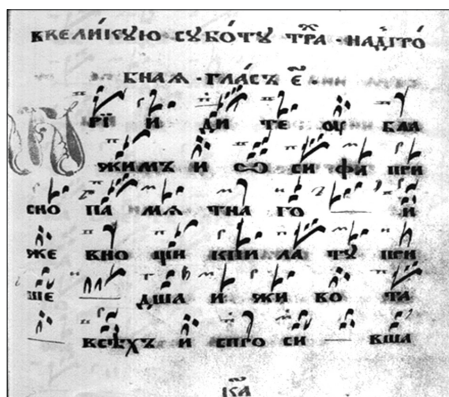 ввели́кую субо́ту ст҃ра · над́гро́
бнаѧ · гла́съ е҃ ·
Прїи и ди те оу бла
жимъ и ѡ си фа при
сно па мѧ тна го и
же вно щи кпи ла ту при
ше дша и жи во та
всѣхъ и спро си вша